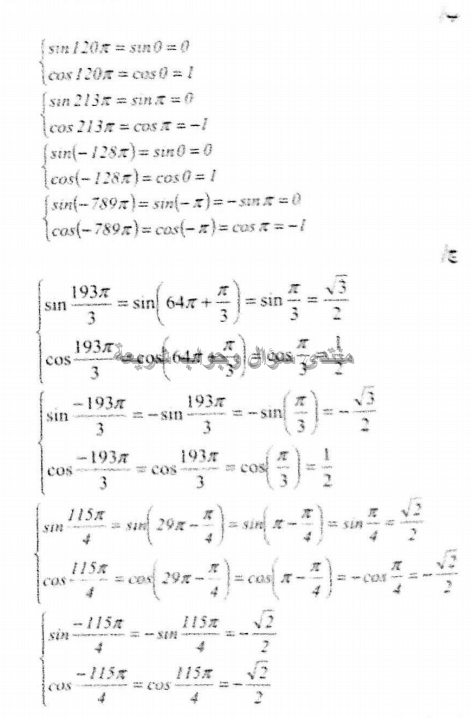 ب/
sin 120π = sin 0 = 0
cos 120π = cos 0 = 1
sin 213π = sin π = 0
cos 213π = cos π = -1
sin(-128π) = sin 0 = 0
cos(-128π) = cos 0 = 1
sin(-789π) = sin(-π) = -sin π = 0
cos(-789π) = cos(-π) = cos π = -1
ج/
sin 193π/3 = sin(64π + π/3) = sin π/3 = √3/2
cos 193π/3 = cos(64π + π/3) = cos π/3 = 1/2
منتدى سؤال وجواب شريعة
sin -193π/3 = -sin 193π/3 = -sin(π/3) = -√3/2
cos -193π/3 = cos 193π/3 = cos(π/3) = 1/2
sin 115π/4 = sin(29π - π/4) = sin(π - π/4) = sin π/4 = √2/2
cos 115π/4 = cos(29π - π/4) = cos(π - π/4) = -cos π/4 = -√2/2
sin -115π/4 = -sin 115π/4 = -√2/2
cos -115π/4 = cos 115π/4 = -√2/2